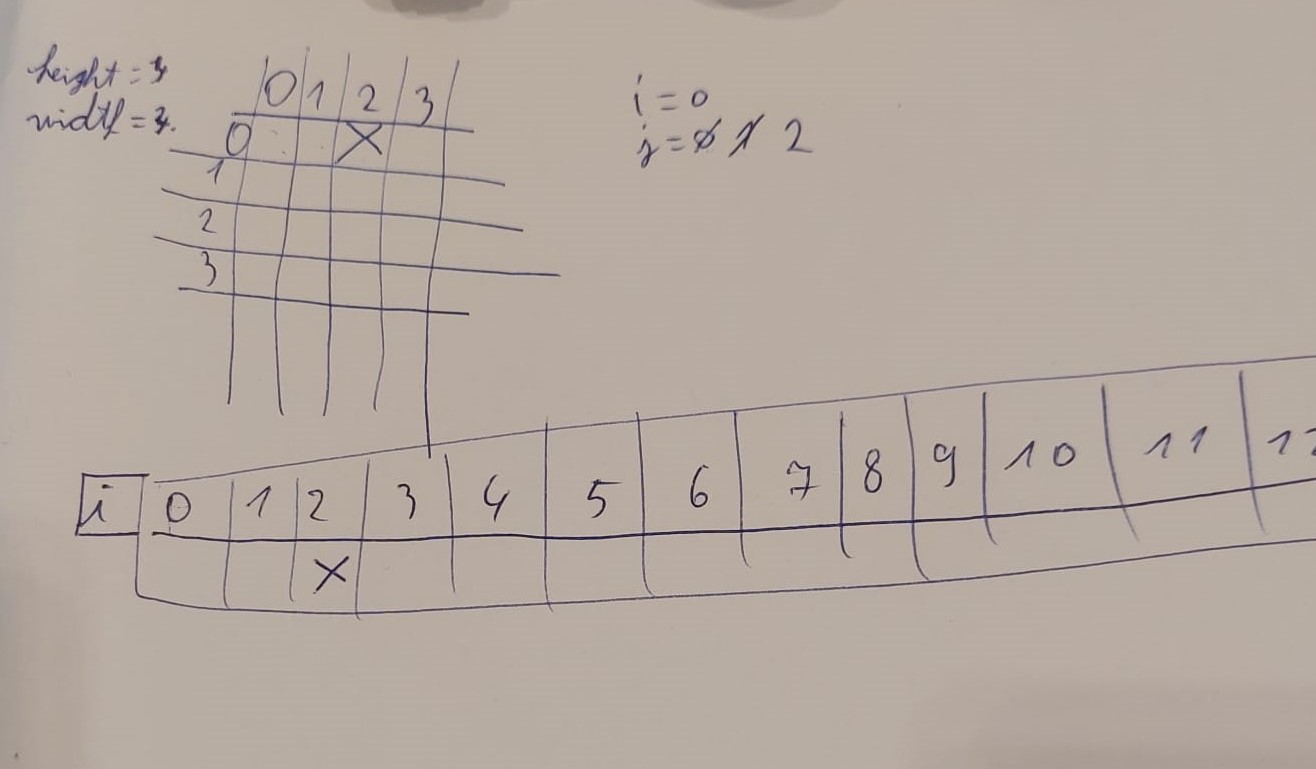 height = 3
width = 3.
0 1 2 3
0 X
1
2
3
i = 0
j = 0 1 2
i 0 1 2 3 4 5 6 7 8 9 10 11
X